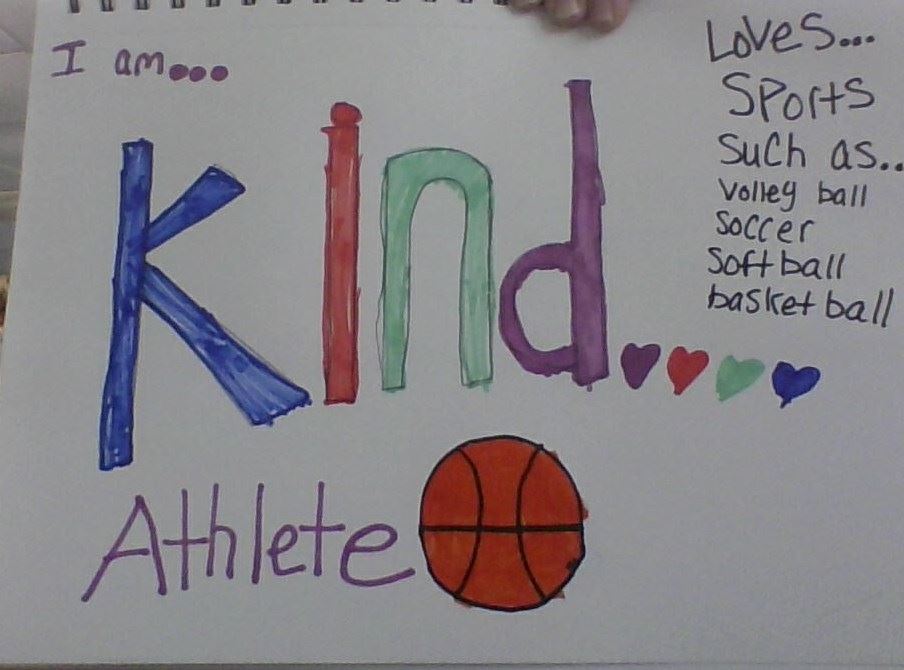 I am...
kind
Athlete
Loves...
Sports
Such as..
Volley ball
Soccer
Softball
basketball